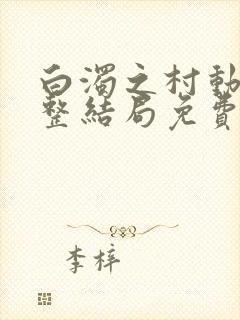 白濁之村動
整結局免費
李梓